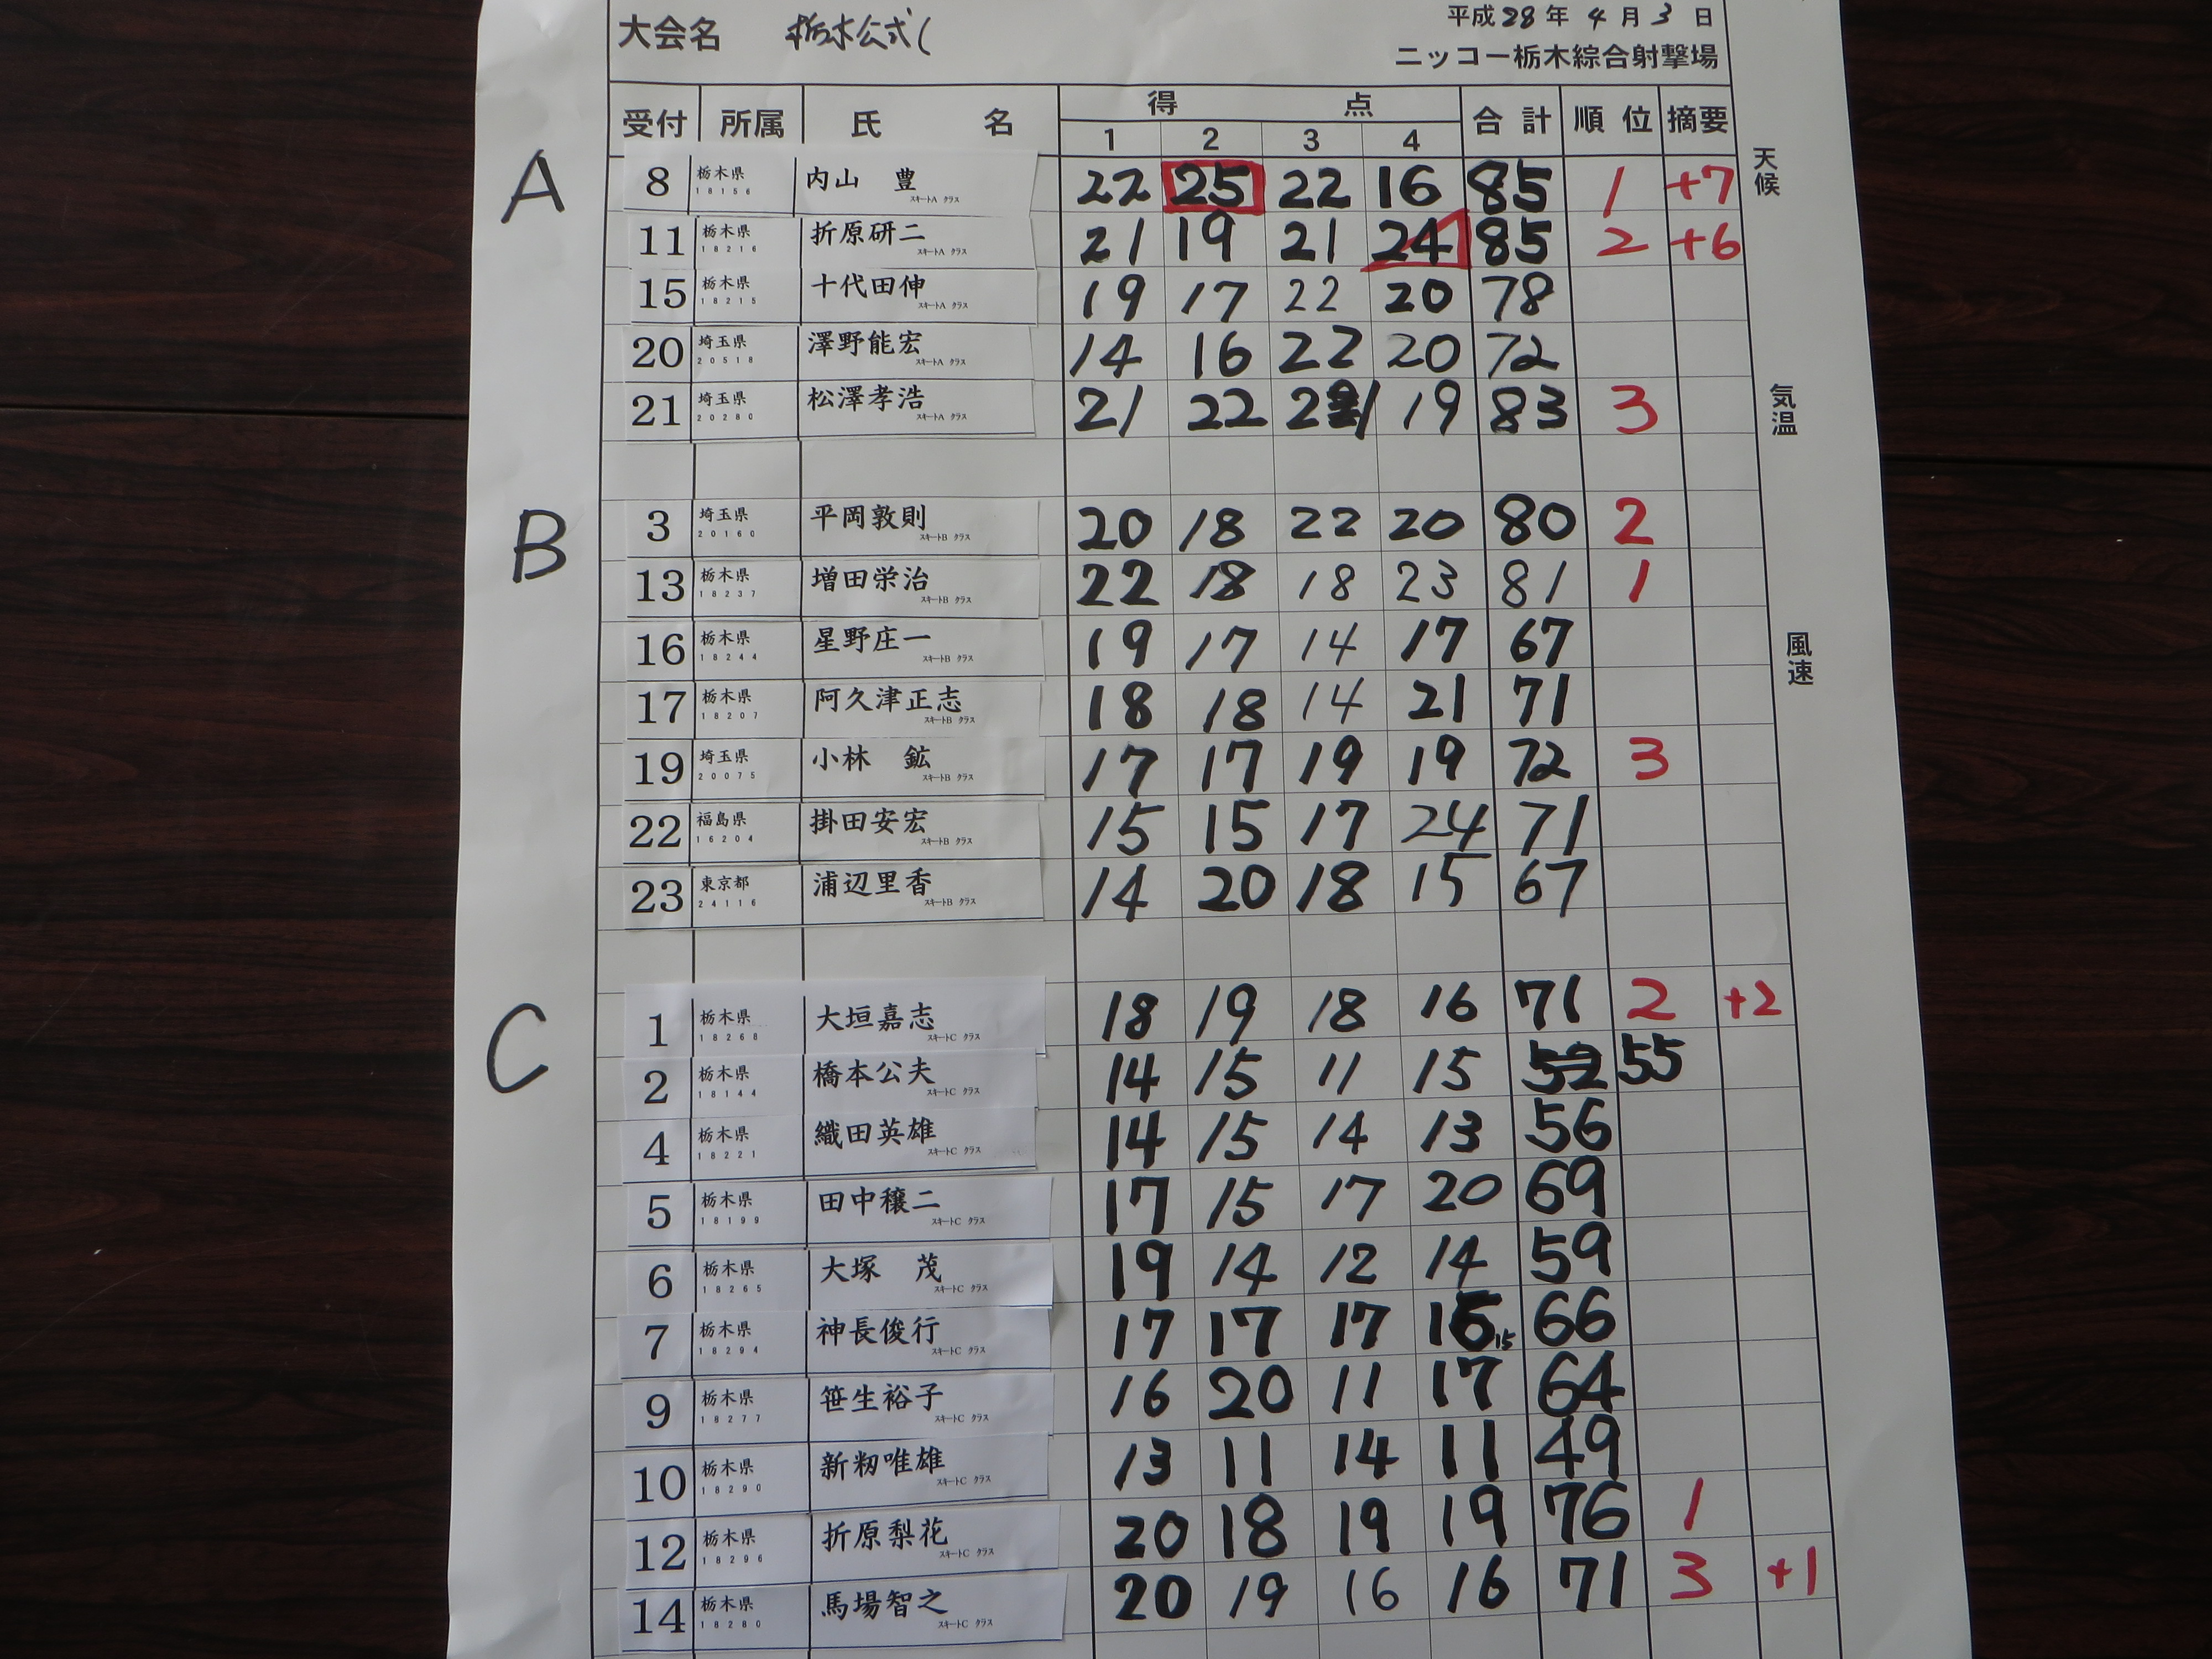 大会名 栃木公式(
平成28年4月3日
ニッコー栃木綜合射撃場
受付 所属 氏名 得点 1 2 3 4 合計 順位 摘要
天候
気温
風速
A
8 栃木県 18156 内山 豊 スキートA クラス 22 25 22 16 85 1 +7
11 栃木県 18216 折原研二 スキートA クラス 21 19 21 24 85 2 +6
15 栃木県 18215 十代田伸 スキートA クラス 19 17 22 20 78
20 埼玉県 20518 澤野能宏 スキートA クラス 14 16 22 20 72
21 埼玉県 20280 松澤孝浩 スキートA クラス 21 22 21 19 83 3
B
3 埼玉県 20160 平岡敦則 スキートB クラス 20 18 22 20 80 2
13 栃木県 18237 増田栄治 スキートB クラス 22 18 18 23 81 1
16 栃木県 18244 星野庄一 スキートB クラス 19 17 14 17 67
17 栃木県 18207 阿久津正志 スキートB クラス 18 18 14 21 71
19 埼玉県 20075 小林 鉱 スキートB クラス 17 17 19 19 72 3
22 福島県 16204 掛田安宏 スキートB クラス 15 15 17 24 71
23 東京都 24116 浦辺里香 スキートB クラス 14 20 18 15 67
C
1 栃木県 18268 大垣嘉志 スキートC クラス 18 19 18 16 71 2 +2
2 栃木県 18144 橋本公夫 スキートC クラス 14 15 11 15 52 55
4 栃木県 18221 織田英雄 スキートC クラス 14 15 14 13 56
5 栃木県 18199 田中穣二 スキートC クラス 17 15 17 20 69
6 栃木県 18265 大塚 茂 スキートC クラス 19 14 12 14 59
7 栃木県 18294 神長俊行 スキートC クラス 17 17 17 15 15 66
9 栃木県 18277 笹生裕子 スキートC クラス 16 20 11 17 64
10 栃木県 18290 新籾唯雄 スキートC クラス 13 11 14 11 49
12 栃木県 18296 折原梨花 スキートC クラス 20 18 19 19 76 1
14 栃木県 18280 馬場智之 スキートC クラス 20 19 16 16 71 3 +1